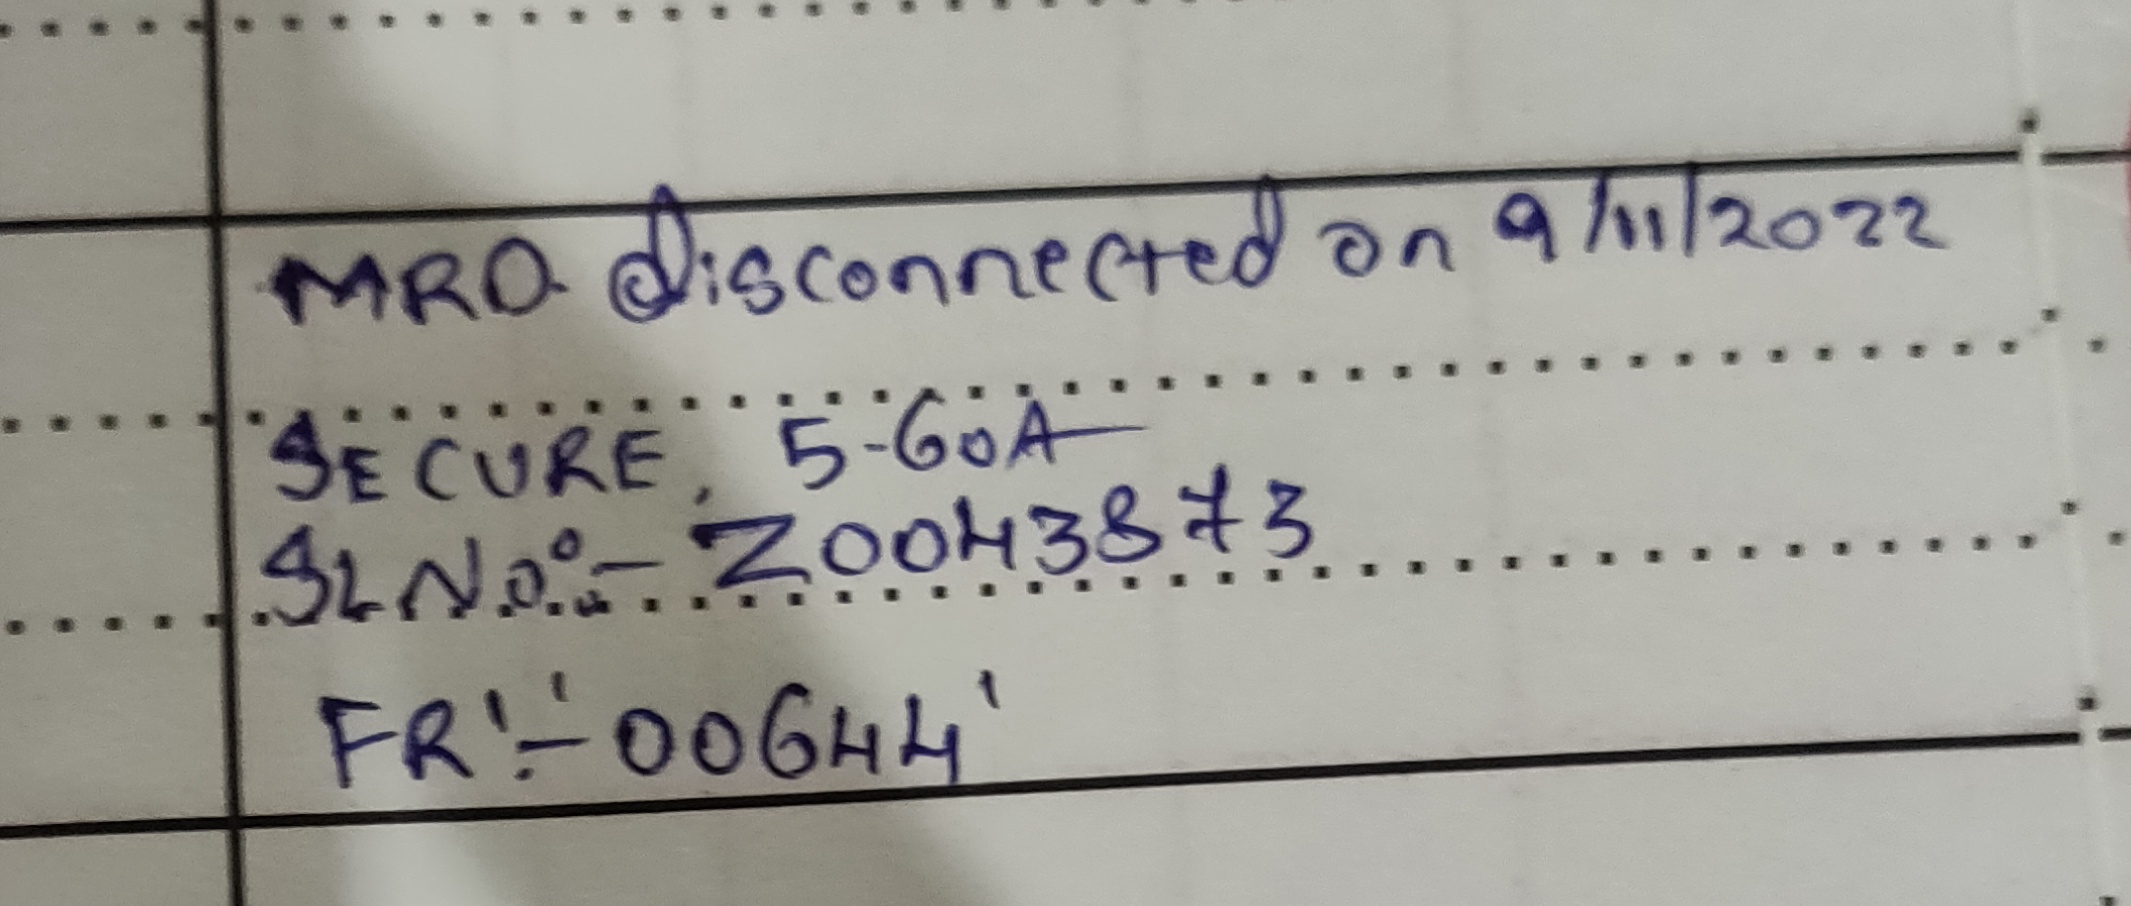 MRD disconnected on 9/11/2022
SECURE, 5-60A
SL No:- Z0043873
FR:- 00644